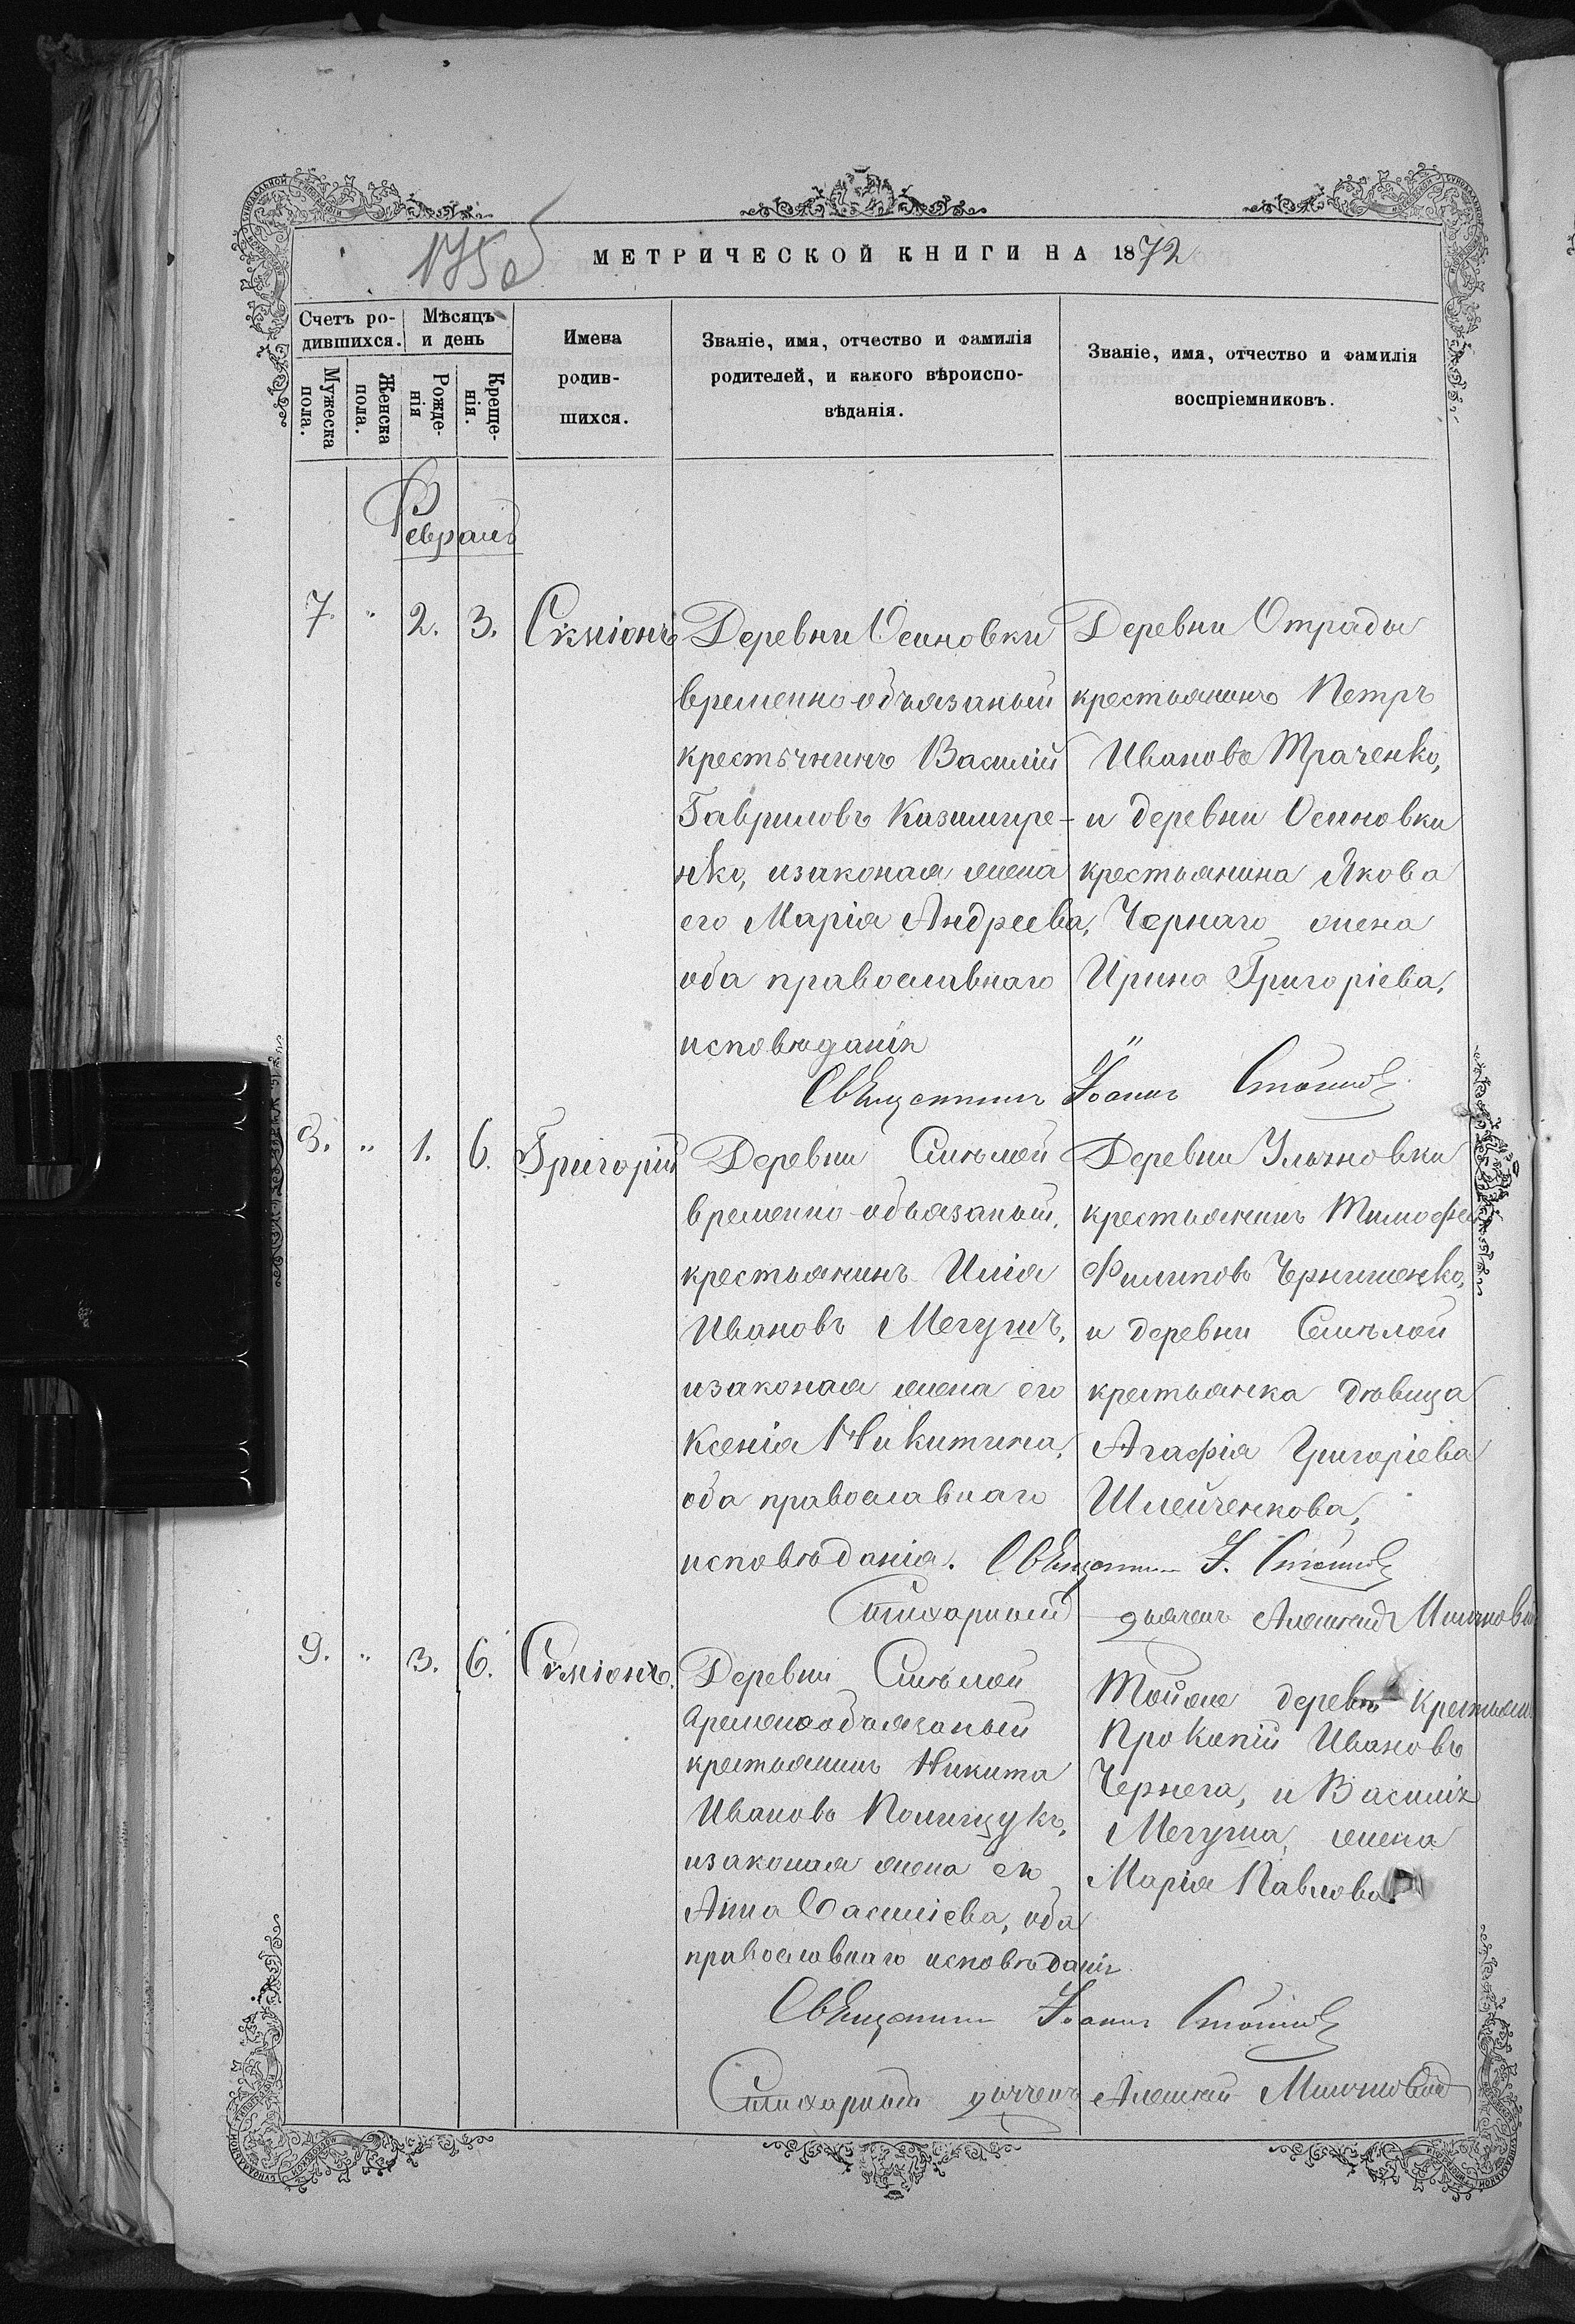 175об
МЕТРИЧЕСКОЙ КНИГИ НА 1872
Счетъ ро-
дившихся.
Мѣсяцъ
и день
Мужеска
пола.
Женска
пола.
Рожде-
нія
Креще-
нія.
Имена
родив-
шихся.
Званіе, имя, отчество и фамилія
родителей, и какого вѣроиспо-
вѣданія.
Званіе, имя, отчество и фамилія
воспріемниковъ.
Февраль
7. " 2. 3. Симіонъ
Деревни Осиновки
временно обязаный
крестьянинъ Василій
Гавриловъ Казимире-
нко, изаконая жена
его Марія Андреева,
оба православнаго
исповѣданія
Деревни Отрады
крестьянинъ Петръ
Ивановъ Траченко,
и деревни Осиновки
крестьянина Якова
Чернаго жена
Ирина Григоріева.
"
Священникъ Іоаннъ
8. " 1. 6. Григорій
Деревни Смѣлой
временно-обязаный
крестьянинъ Илія
Ивановъ Мегушъ,
изаконая жена его
Ксенія Никитина,
оба православнаго
исповѣданія.
Деревни Ульяновки
крестьянинъ Тимофей
Филиповъ Чернишенко,
и деревни Смѣлой
крестьянка дѣвица
Агафія Григоріева
Шлейченкова,
Священникъ І.
Стихарный дьячекъ Алексѣй
9. " 3. 6. Симіонъ.
Деревни Смѣлой
временнообязаный
крестьянинъ Никита
Ивановъ Полищукъ,
изаконая жена ею
Анна Василіева, оба
православнаго исповѣданія
Тойже деревни крестьян
Прокопій Ивановъ
Чернега, и Василія
Мегуша, жена
Марія Павлова.
Священникъ Іоаннъ
Стихарный дьячекъ Алексѣй